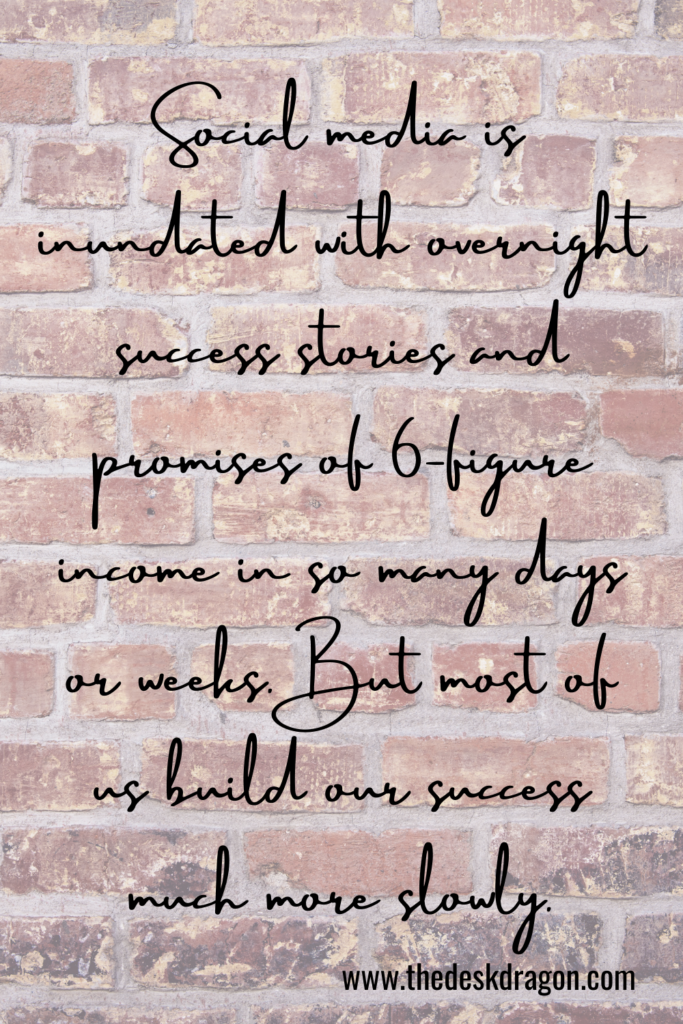 Social media is
inundated with overnight
success stories and
promises of 6-figure
income in so many days
or weeks. But most of
us build our success
much more slowly.
www.thedeskdragon.com